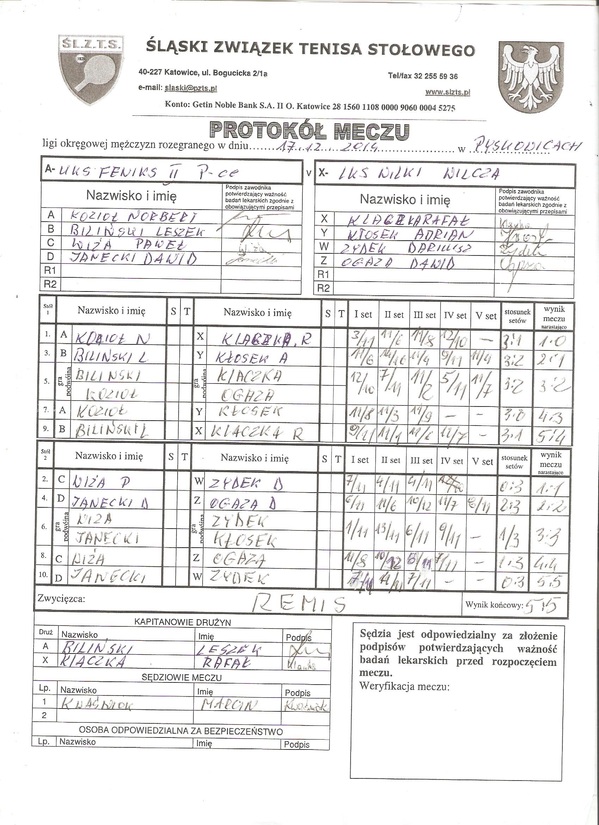 ŚL.Z.T.S.
ŚLĄSKI ZWIĄZEK TENISA STOŁOWEGO
40-227 Katowice, ul. Bogucicka 2/1a Tel/fax 32 255 59 36
e-mail: slaski@pzts.pl www.slzts.pl
Konto: Getin Noble Bank S.A. II O. Katowice 28 1560 1108 0000 9060 0004 5275
PROTOKÓŁ MECZU
ligi okręgowej mężczyzn rozegranego w dniu 17.12.2014 w PYSKOWICACH
A- UKS FENIKS II P-ce v X- LKS WILKI WILCZA
Nazwisko i imię Podpis zawodnika potwierdzający ważność badań lekarskich zgodnie z obowiązującymi przepisami Nazwisko i imię Podpis zawodnika potwierdzający ważność badań lekarskich zgodnie z obowiązującymi przepisami
A KOZIOŁ NORBERT X KLACZKA RAFAŁ
B BILIŃSKI LESZEK Y KŁOSEK ADRIAN
C WIŻA PAWEŁ W ZYDEK DARIUSZ
D JANECKI DAWID Z OGAZA DAWID
R1 R1
R2 R2
Stół 1 Nazwisko i imię S T Nazwisko i imię S T I set II set III set IV set V set stosunek setów wynik meczu narastająco
1. A KOZIOŁ N X KLACZKA R 3/11 11/6 11/8 12/10 – 3:1 1:0
3. B BILIŃSKI L Y KŁOSEK A 11/4 3:2 2:1
5. gra podwójna BILIŃSKI KOZIOŁ gra podwójna KLACZKA OGAZA 12/10 7/11 11/2 5/11 11/7 3:2 3:2
7. A KOZIOŁ Y KŁOSEK 11/8 11/3 11/9 – – 3:0 4:3
9. B BILIŃSKI L X KLACZKA R 11/7 – 3:1 5:4
Stół 2 Nazwisko i imię S T Nazwisko i imię S T I set II set III set IV set V set stosunek setów wynik meczu narastająco
2. C WIŻA P W ZYDEK D 7/11 4/11 4/11 – 0:3 1:1
4. D JANECKI D Z OGAZA D 6/11 11/6 10/12 11/7 6/11 2:3 2:2
6. gra podwójna WIŻA JANECKI gra podwójna ZYDEK KŁOSEK 1/11 13/11 6/11 9/11 – 1/3 3:3
8. C WIŻA Z OGAZA 11/8 10/12 5/11 7/11 – 1:3 4:4
10. D JANECKI W ZYDEK 7/11 – – 0:3 5:5
Zwycięzca: REMIS Wynik końcowy: 5:5
KAPITANOWIE DRUŻYN
Druż Nazwisko Imię Podpis
A BILIŃSKI LESZEK
X KLACZKA RAFAŁ
SĘDZIOWIE MECZU
Lp. Nazwisko Imię Podpis
1 MARCIN
2
OSOBA ODPOWIEDZIALNA ZA BEZPIECZEŃSTWO
Lp. Nazwisko Imię Podpis
Sędzia jest odpowiedzialny za złożenie
podpisów potwierdzających ważność
badań lekarskich przed rozpoczęciem
meczu.
Weryfikacja meczu: